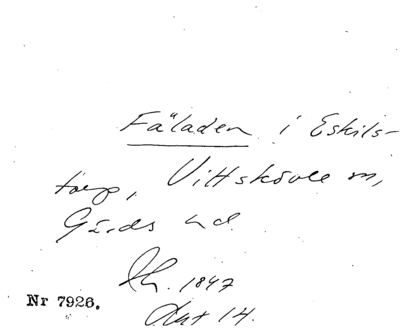 Fäladen i Eskils-
torp, Vittskövle sn,
Gärds hd.
1847
Nr 7926.
Akt 14.